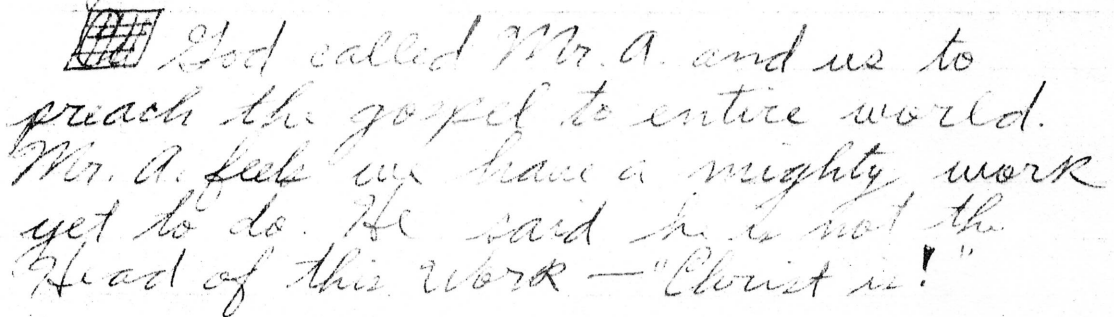 God called Mr. A. and us to
preach the gospel to entire world.
Mr. A. feels we have a mighty work
yet to do. He said he is not the
Head of this Work — "Christ is!"